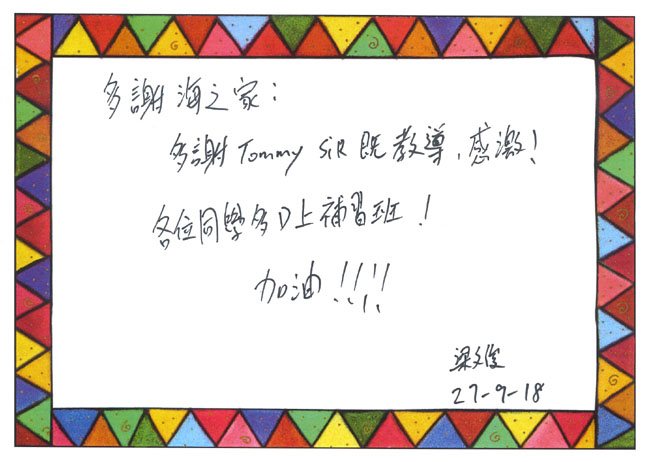 多謝海之家：
多謝 Tommy SiR 既教導，感激！
各位同學多D上補習班！
加油！！！！
梁文俊
27-9-18